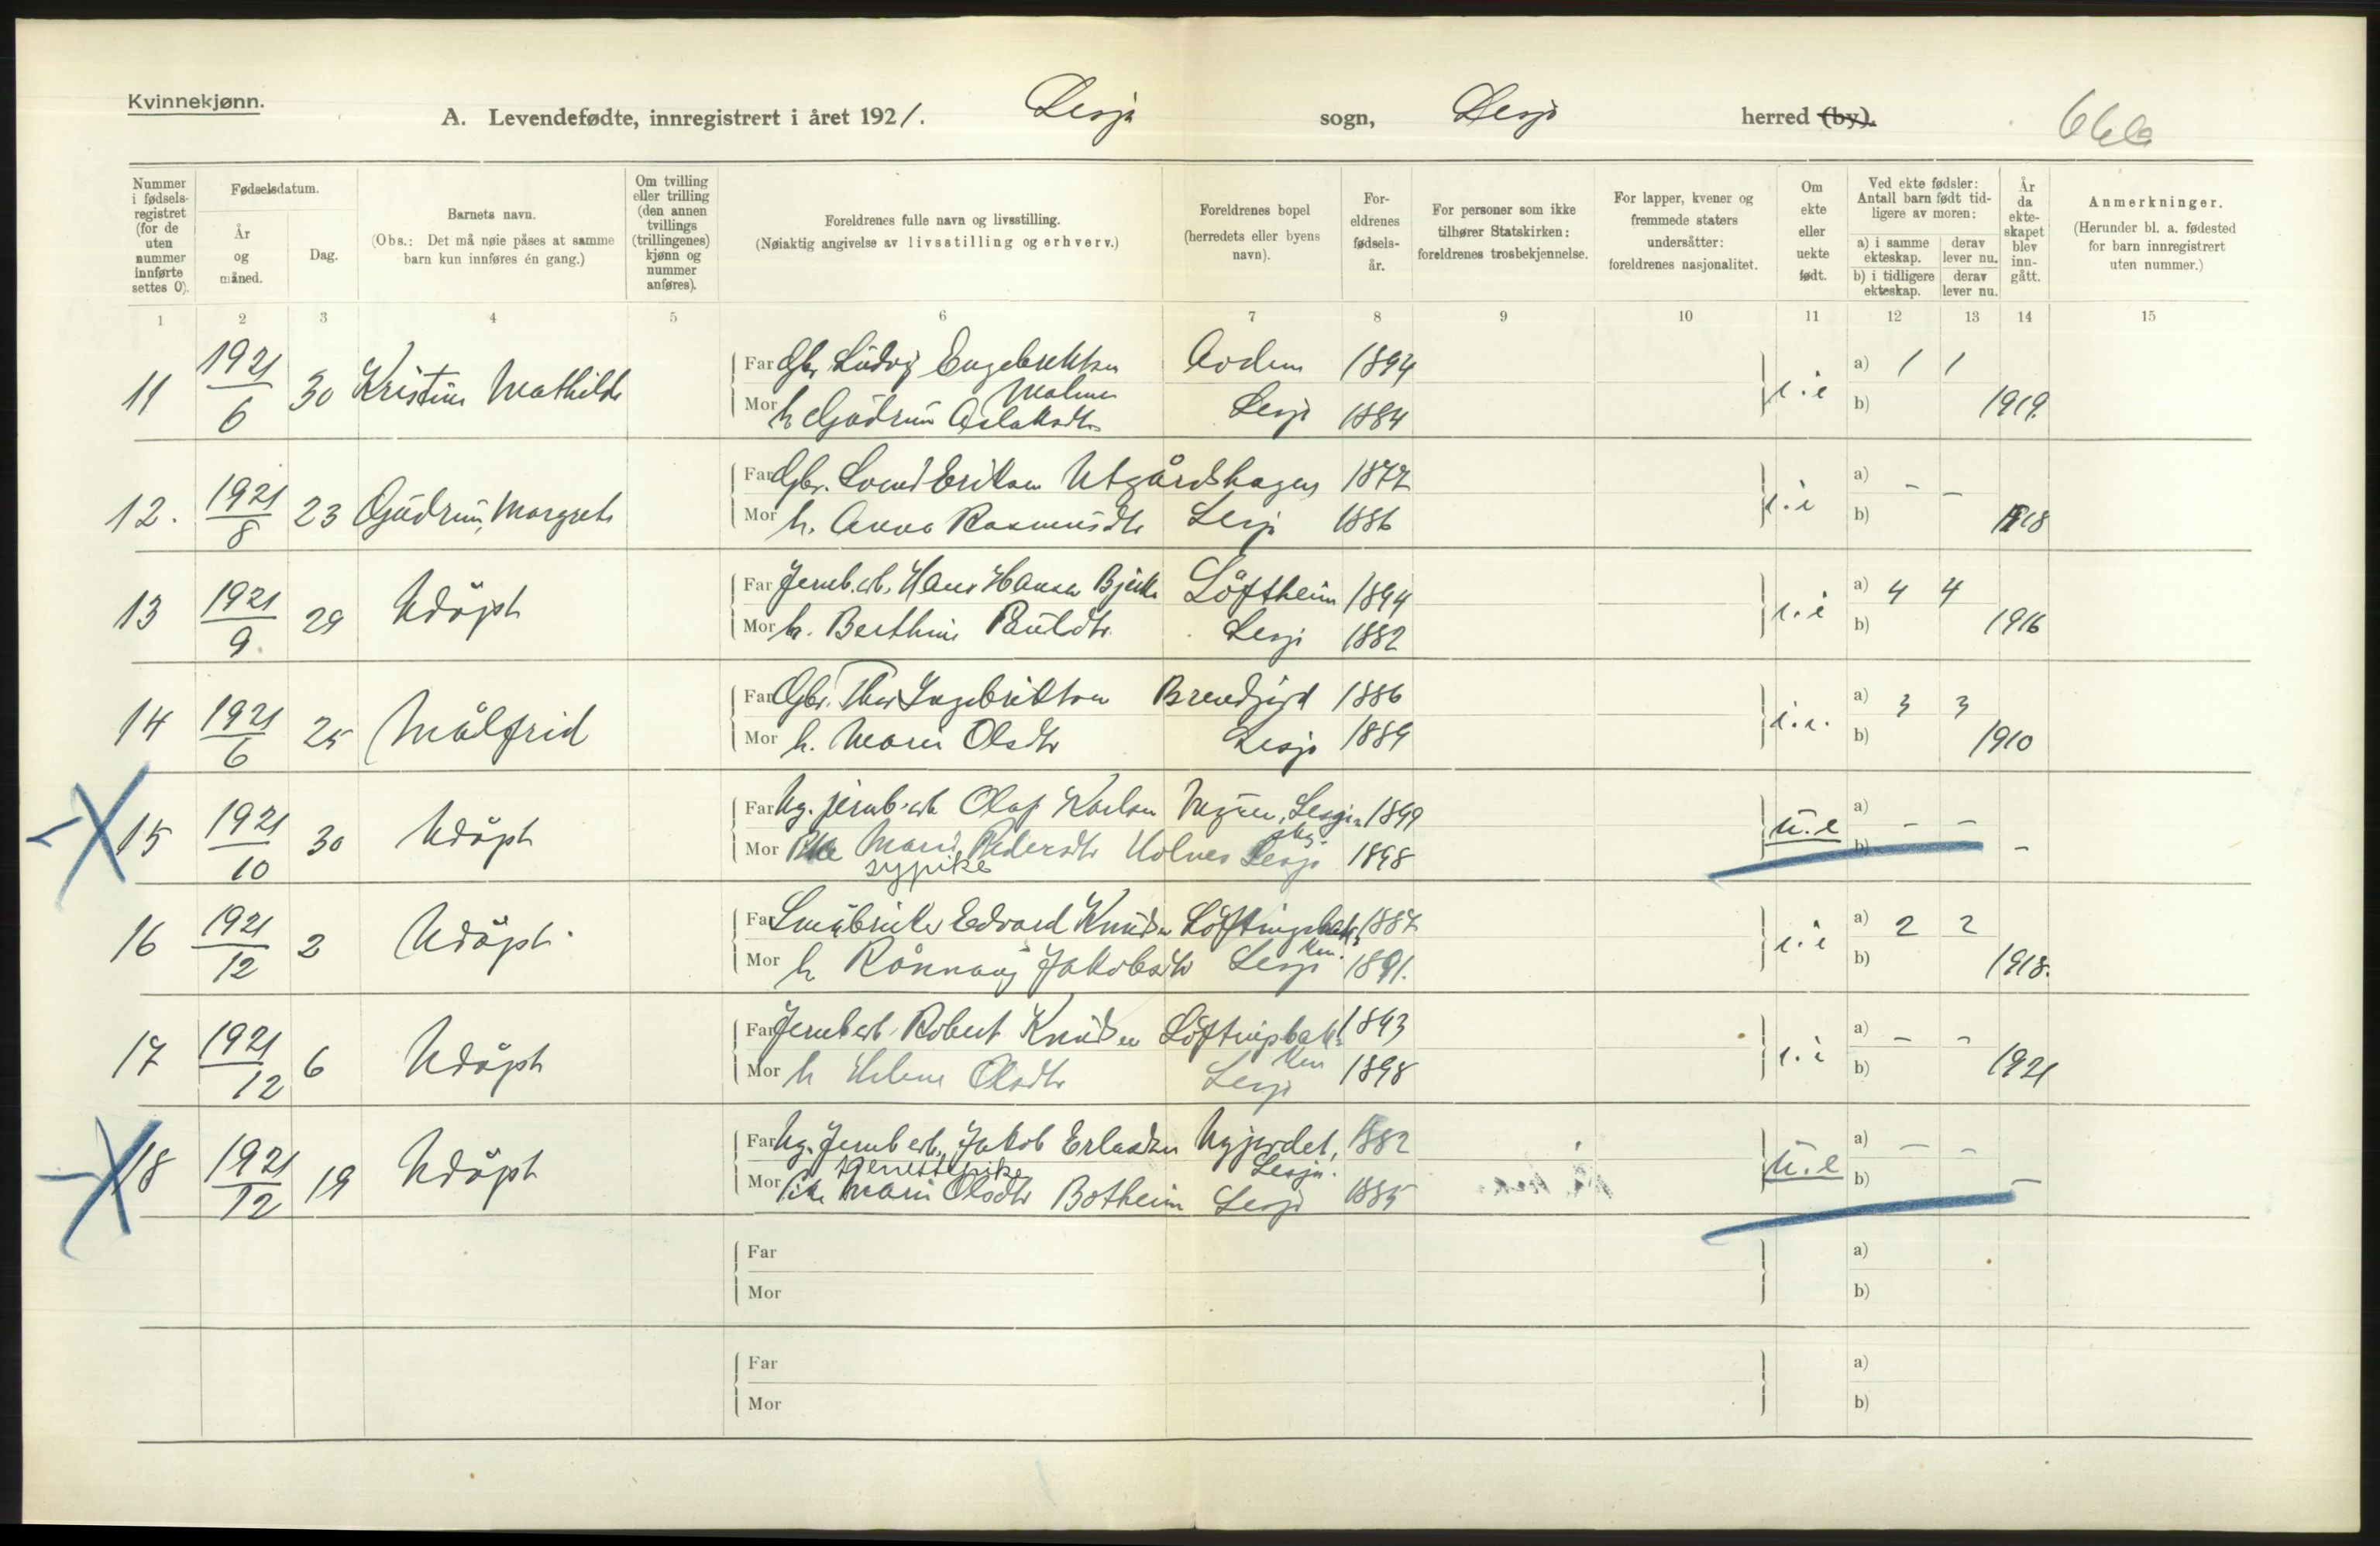 Kvinnekjønn.
A. Levendefødte, innregistrert i året 1921. Lesja sogn, Lesja herred (by).
Nummer i fødsels-registret (for de uten nummer innførte settes 0).
Fødselsdatum.
År og måned.
Dag.
Barnets navn.
(Obs.: Det må nøie påses at samme barn kun innføres én gang.)
Om tvilling eller trilling (den annen tvillings (trillingenes) kjønn og nummer anføres).
Foreldrenes fulle navn og livsstilling.
(Nøiaktig angivelse av livsstilling og erhverv.)
Foreldrenes bopel (herredets eller byens navn).
For-eldrenes fødsels-år.
For personer som ikke tilhører Statskirken: foreldrenes trosbekjennelse.
For lapper, kvener og fremmede staters undersåtter: foreldrenes nasjonalitet.
Om ekte eller uekte født.
Ved ekte fødsler: Antall barn født tid-ligere av moren:
a) i samme ekteskap. derav lever nu.
b) i tidligere ekteskap. derav lever nu.
År da ekte-skapet blev inn-gått.
Anmerkninger.
(Herunder bl. a. fødested for barn innregistrert uten nummer.)
1 2 3 4 5 6 7 8 9 10 11 12 13 14 15
11 1921/6 30 Kristine Mathilde Far Gbr. Ludvig Engebriktsen 1894 a) 1 1
Mor h Gudrun Aslaksdtr Lesja 1884 b) 1919.
12. 1921/8 23 Gudrun Margrete Far Gbr. Svend Eriksen Utgårdshagen 1877 a) - -
Mor h. Anna Rasmusdtr Lesja 1886 b) 1918
13 1921/9 29 Udöpt Far Jernb.arb. Hans Hansen Löftheim 1894 a) 4 4
Mor h. Berthine Paulsdtr. Lesja 1882 b) 1916
14 1921/6 25 Målfrid Far Gbr. Thor Ingebriktsen 1886 a) 3 3
Mor h. Mari Olsdtr Lesja 1889 b) 1910
15 1921/10 30 Udöpt Far Ug. jernb.arb Olaf Karlsen Lesja 1899 u.e a) - -
Mor Pike Mari Pedersdtr Lesja 1898 b) -
sypike
16 1921/12 2 Udöpt Far Edvard Knudsen 1887 a) 2 2
Mor h Rånnaug Jakobsdtr Lesja 1891. b) 1918.
17 1921/12 6 Udöpt Far Jernb.arb. Robert Knudsen 1893 a) - -
Mor h Helene Olsdtr Lesja 1898 b) 1921
18 1921/12 19 Udöpt Far Ug. Jernb.arb. Jakob Erlandsen Nyjordet, Lesja. 1882 u.e a) - -
tjenestepike
Mor Pike Mari Olsdtr Botheim Lesja 1885 b) -
Far a)
Mor b)
Far a)
Mor b)